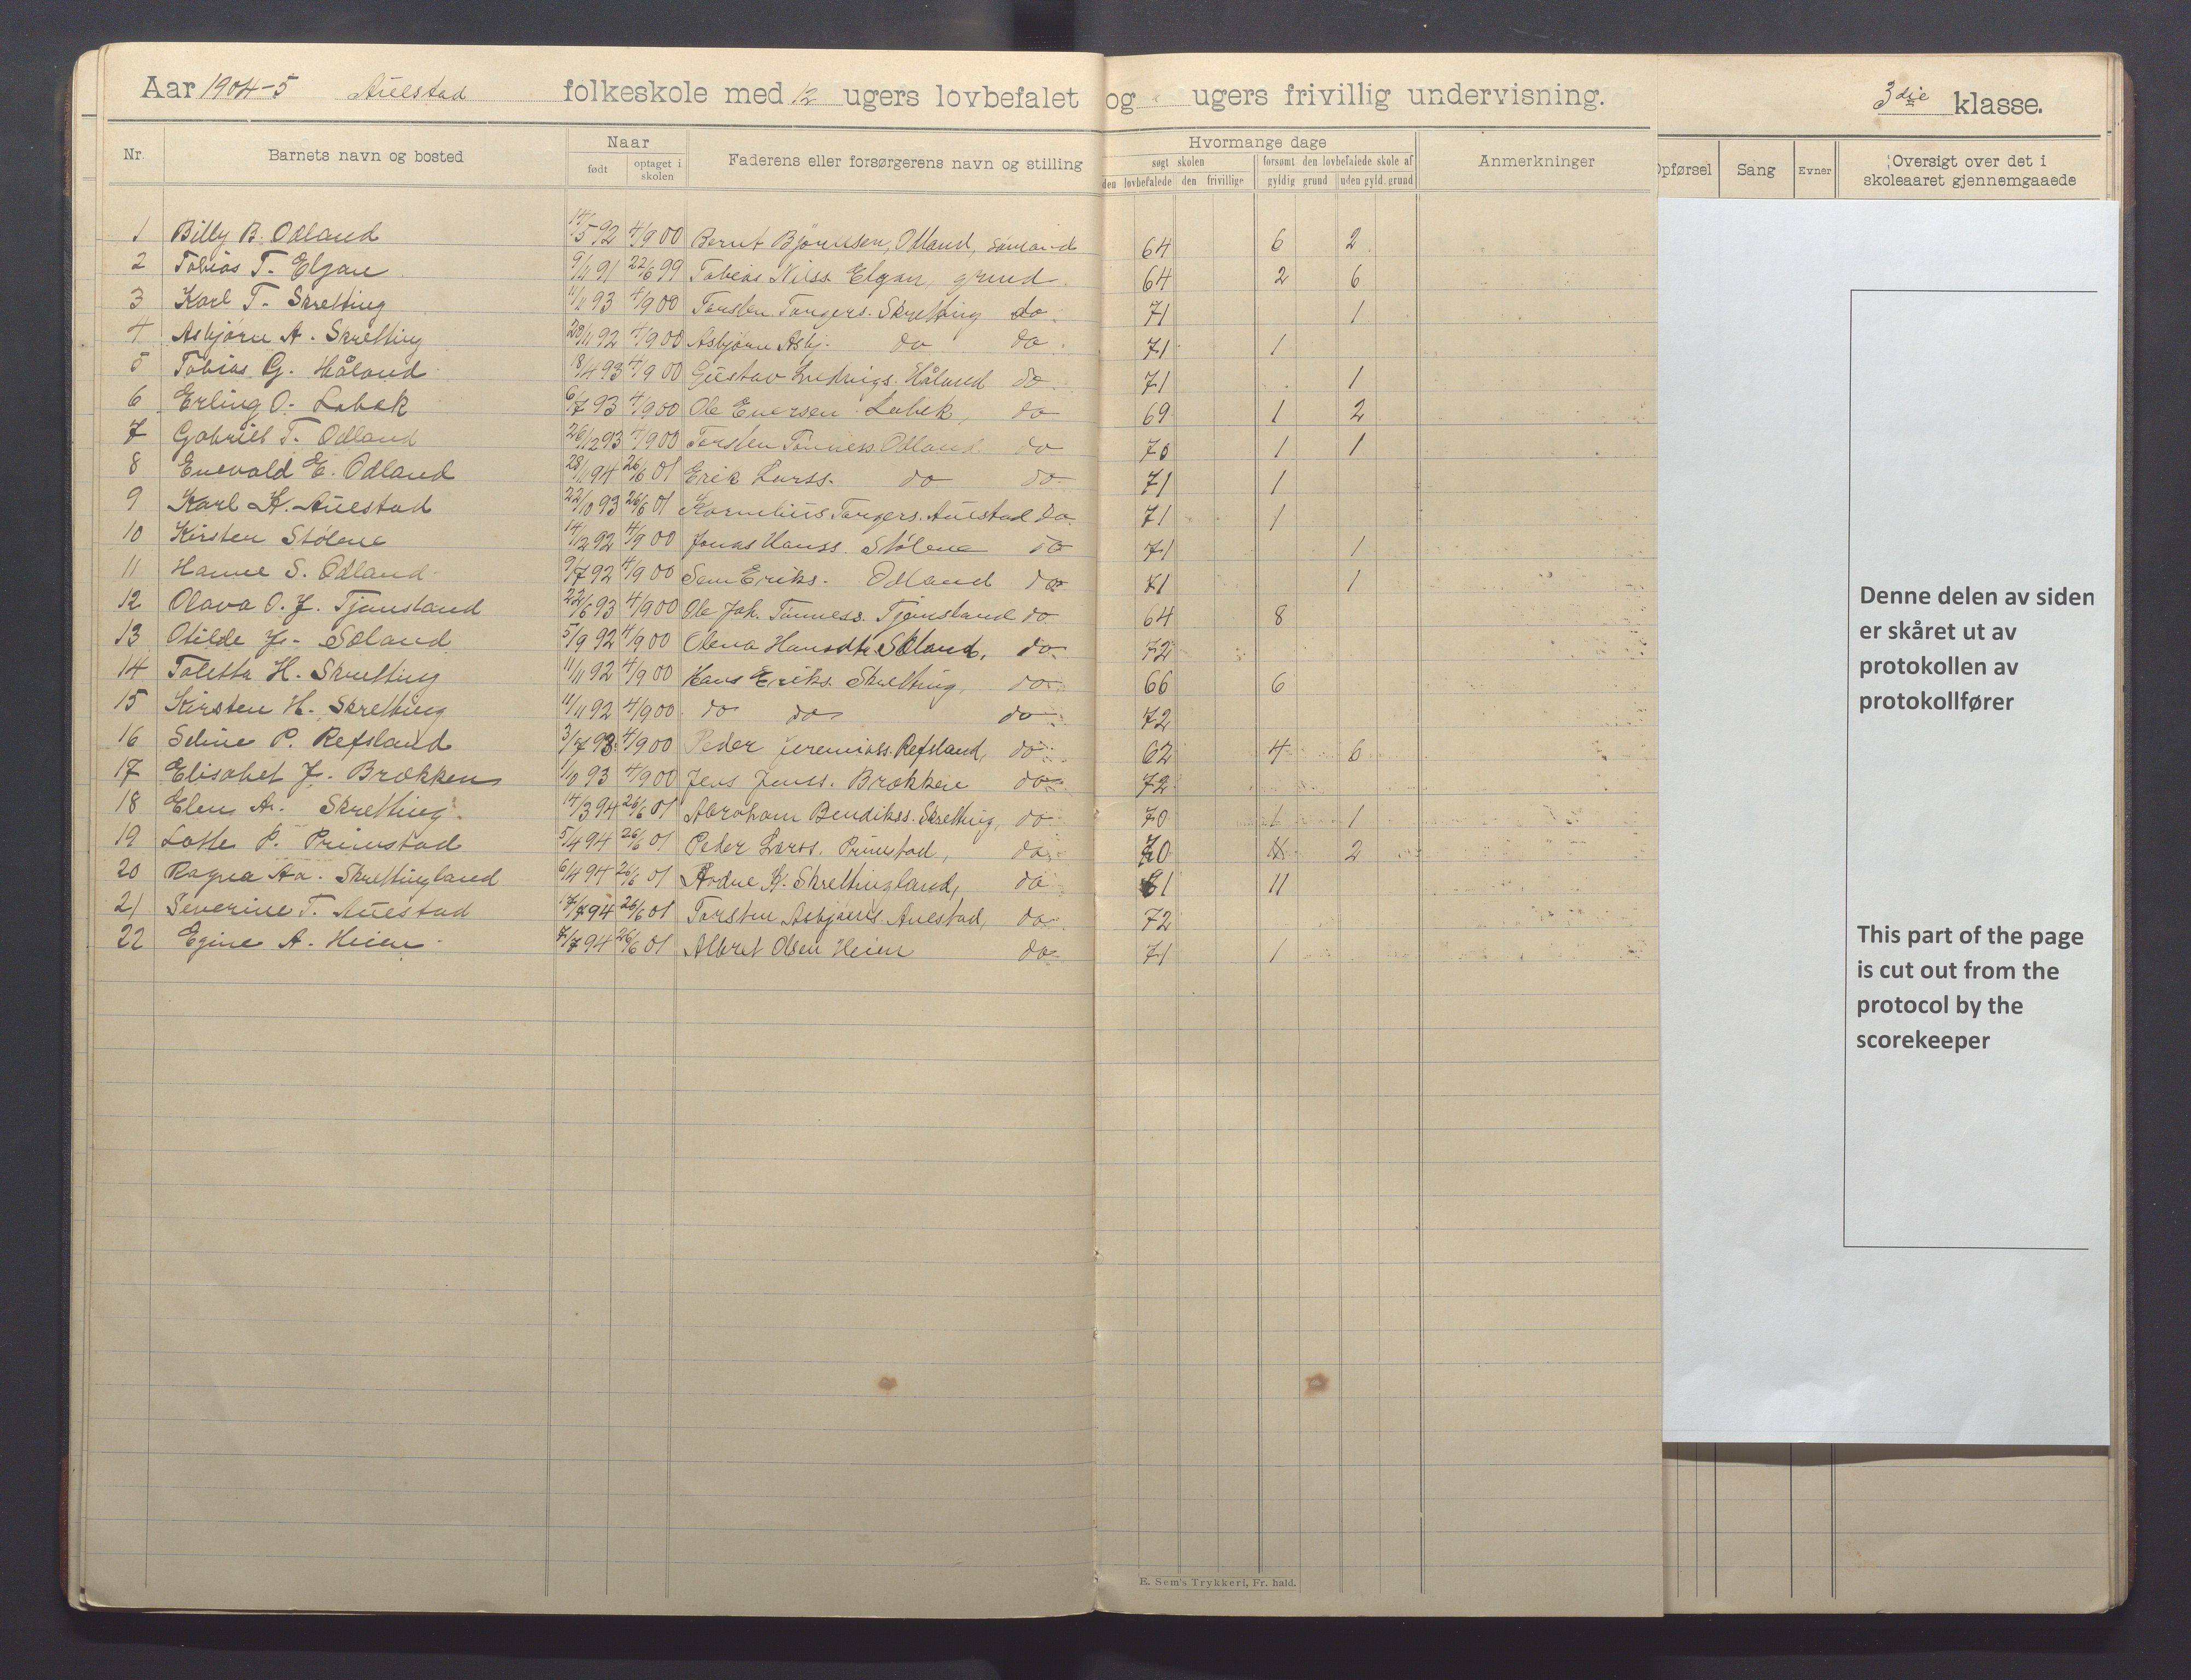 Aar 1904-5 Auestad folkeskole med 12 ugers lovbefalet og ugers frivillig undervisning. 3die klasse.
Nr. Barnets navn og bosted Naar født optaget i skolen Faderens eller forsørgerens navn og stilling Hvormange dage søgt skolen den lovbefalede den frivillige forsømt den lovbefalede skole af gyldig grund uden gyld. grund Anmerkninger Opførsel Sang Evner Oversigt over det i skoleaaret gjennemgaaede
1 Billy B. Odland 14/5 92 4/9 00 Bernt Bjørnsen, Odland, 64 6 2
2 Tobias T. Elgan 9/11 91 22/6 99 Tobias Nilss. Elgan, grmd. 64 2 6
3 Karl T. Skretting 11/11 93 4/9 00 Torsten Torgers. Skretting do. 71 1
4 Asbjørn A. Skretting 20/11 92 4/9 00 Asbjørn Asbj. do do. 71 1
5 Tobias G. Håland 18/4 93 4/9 00 Gustav Ludvigs. Håland do. 71 1
6 Erling O. Labek 6/7 93 4/9 00 Ole Enersen Labek, do 69 1 2
7 Gabriel T. Odland 26/12 93 4/9 00 Torsten Tønness. Odland do 70 1 1
8 Enevald E. Odland 28/1 94 26/6 01 Erik Larss. do do 71 1
9 Karl K. Auestad 22/10 93 26/6 01 Kornelius Torgers. Auestad do. 71 1
10 Kirsten Stølene 14/2 92 4/9 00 Jonas Hanss. Stølene do 71 1
11 Hanne S. Odland 9/7 92 4/9 00 Sem Eriks. Odland do 71 1
12 Olava O. J. Tjømsland 22/6 93 4/9 00 Ole Joh. Tønness. Tjømsland do 64 8
13 Otilde J. Søland 5/9 92 4/9 00 Olena Hansdtr Søland, do. 72
14 Taletta H. Skretting 11/11 92 4/9 00 Hans Eriks. Skretting, do 66 6
15 Kirsten H. Skretting 11/11 92 4/9 00 do do do 72
16 Seline P. Refsland 3/7 93 4/9 00 Peder Jeremiass. Refsland, do 62 4 6
17 Elisabet J. Brækken 1/10 93 4/9 00 Jens Jenss. Brækken do 72
18 Elen A. Skretting 14/3 94 26/6 01 Abraham Bendikss. Skretting, do 70 1 1
19 Lotte P. Primstad 5/4 94 26/6 01 Peder Larss. Primstad, do 70 2
20 Ragna Aa. Skrettingland 6/4 94 26/6 01 K. Skrettingland, do 61 11
21 Severine T. Auestad 17/7 94 26/6 01 Torsten Asbjørns. Auestad, do 72
22 Egine A. Heien 7/7 94 26/6 01 Albret Olsen Heien do 71 1
Denne delen av siden
er skåret ut av
protokollen av
protokollfører
This part of the page
is cut out from the
protocol by the
scorekeeper
E. Sem's Trykkeri, Fr. hald.